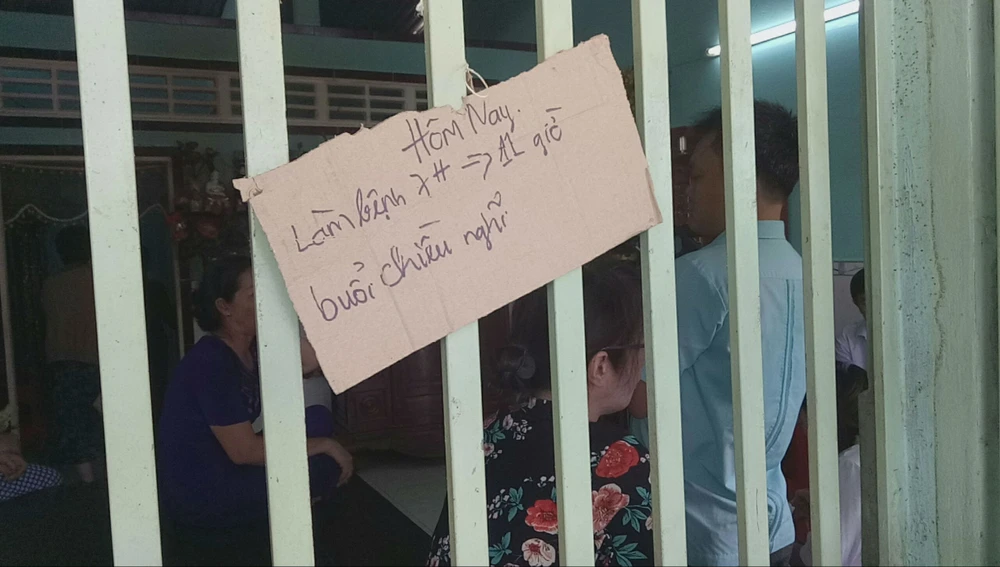 Hôm Nay.
Làm bệnh 7H => 11 giờ
buổi chiều nghỉ